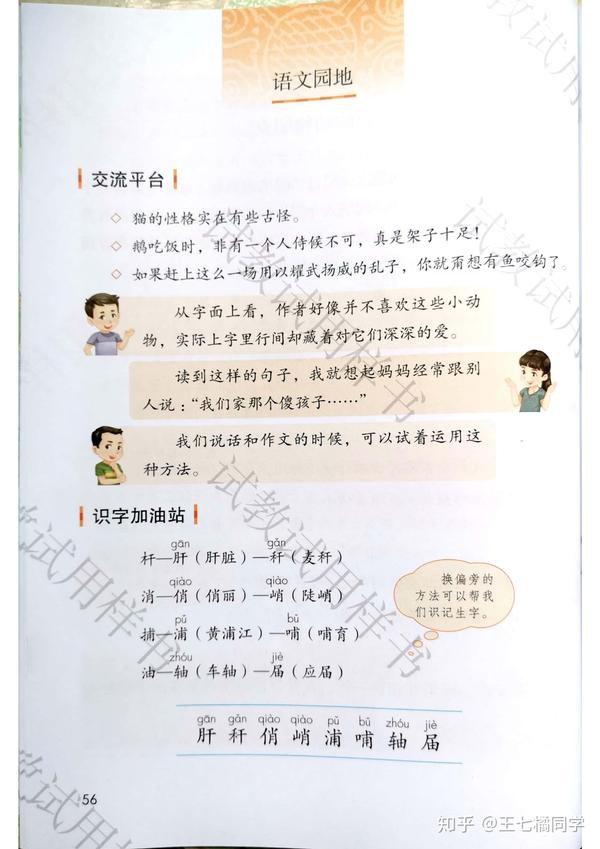 语文园地
交流平台
◇ 猫的性格实在有些古怪。
◇ 鹅吃饭时，非有一个人侍候不可，真是架子十足！
◇ 如果赶上这么一场用以耀武扬威的乱子，你就甭想有鱼咬钩了。
从字面上看，作者好像并不喜欢这些小动
物，实际上字里行间却藏着对它们深深的爱。
读到这样的句子，我就想起妈妈经常跟别
人说：“我们家那个傻孩子……”
我们说话和作文的时候，可以试着运用这
种方法。
识字加油站
gān gǎn
杆—肝（肝脏）—秆（麦秆）
qiào qiào
消—俏（俏丽）—峭（陡峭）
pǔ bǔ
捕—浦（黄浦江）—哺（哺育）
zhóu jiè
油—轴（车轴）—届（应届）
换偏旁的
方法可以帮我
们识记生字。
gān gǎn qiào qiào pǔ bǔ zhóu jiè
肝 秆 俏 峭 浦 哺 轴 届
56
知乎 @王七橘同学
试教试用样书
试教试用样书
试教试用样书
试教试用样书